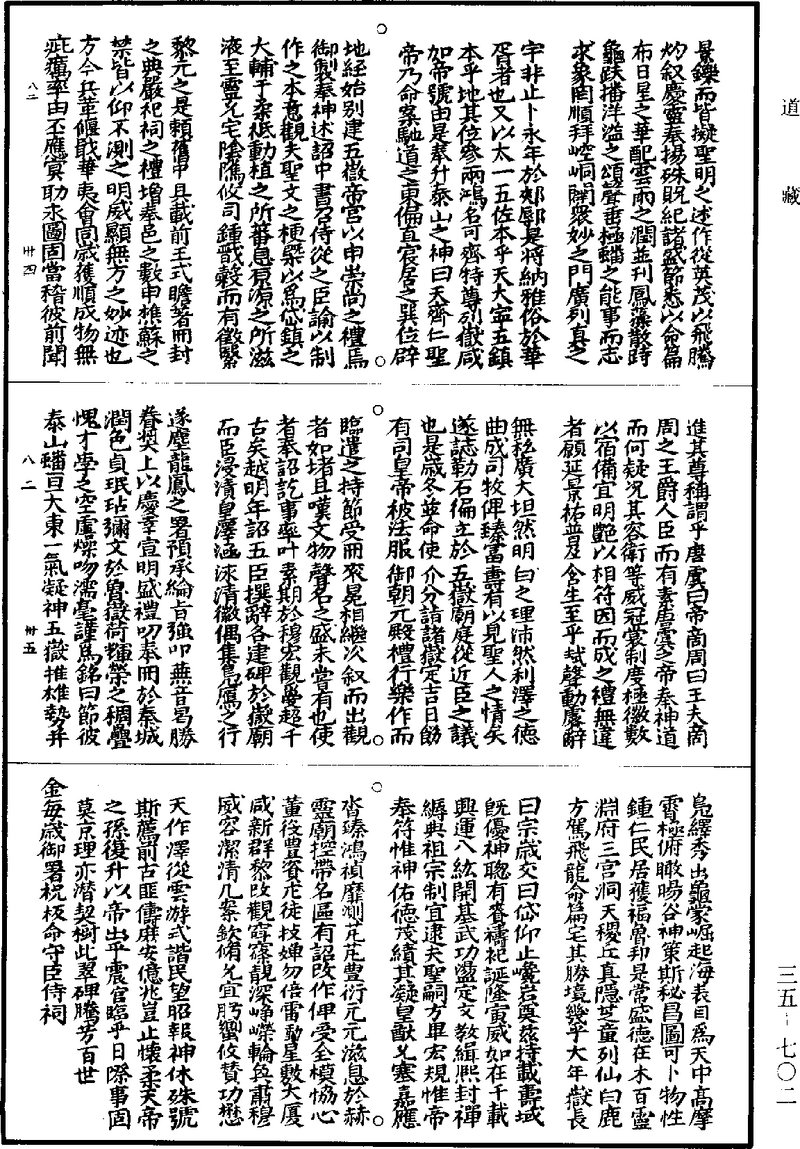 道藏
景鑠而皆擬聖明之述作從英茂以飛騰
灼叙慶靈奉揚殊貺紀諸盛節悉以命篇
布日星之華配雲雨之潤並刊鳳藻散時
龜趺播洋溢之頌聲畢極蟠之能事而志
求象罔順拜崆峒闢衆妙之門廣列真之
宇非止卜永年於郟鄏是將納雅俗於華
胥者也又以太一五佐本乎天大宗五鎮
本乎地其位參兩鴻名可齊特尊列嶽咸
如帝號由是奉升泰山之神曰天齊仁聖
帝乃命案馳道之東偏直宸居之巽位辟
地經始别建五嶽帝宫以申崇尚之禮焉
御製奉神述詔中書召侍從之臣諭以制
作之本意觀夫聖文之梗槩以爲岱鎮之
大輔于柔祇動植之所蕃息泉源之所滋
液至靈允宅陰隲攸司鍾戩穀而有徵繄
黎元之是賴舊史具載前王式瞻著冊封
之典嚴祀祠之禮增奉邑之數申樵蘇之
禁皆以仰不測之明威顯無方之妙迹也
方今兵革偃戢華夷會同歲獲順成物無
疵癘率由丕應寔助永圖固當稽彼前聞
八二 卅四
進其尊稱謂乎唐虞曰帝商周曰王夫商
周之王爵人臣而有素唐虞之帝奉神道
而何疑况其容衛等威冠裳制度極徽數
以宿備宜明艷以相符因而成之禮無違
者願延景祐普及含生至乎軾聲動慮辭
無私廣大坦然明白之理沛然利澤之德
曲成司牧俾臻富壽有以見聖人之情矣
遂誌勒石偏立於五嶽廟庭從近臣之議
也是歲冬並命使介分詣諸嶽定吉日飭
有司皇帝被法服御朝元殿禮行樂作而
臨遣之持節受冊衮冕相繼次叙而出觀
者如堵且嘆文物聲名之盛未嘗有也使
者奉詔訖事率叶素期於穆宏觀敻超千
古矣越明年詔五臣撰辭各建碑於嶽廟
而臣浸漬皇澤涵泳清徽偶集鳧鴈之行
遂塵龍鳳之署預承綸旨強叩蕪音曷勝
眷獎上以慶幸宣明盛禮叨奉冊於秦城
潤色貞珉玷彌文於魯嶽荷輝榮之稠疊
愧才學之空虚燥吻濡毫謹爲銘曰節彼
泰山蟠亘大東一氣凝神五嶽推雄勢并
八二 卅五
鳧繹秀出龜蒙崛起海表目爲天中高摩
霄極俯瞰暘谷神策斯秘昌圖可卜物性
鍾仁民居獲福魯邦是常盛德在木百靈
淵府三宫洞天稷丘真隱芝童列仙白鹿
方駕飛龍命篇宅其勝境幾乎大年嶽長
曰宗歲交曰岱仰止巖巖奠兹持載壽域
既優神聰有賚禱祀誕隆寅威如在千載
興運八紘開基武功盪定文教緝熙封禪
縟典祖宗制宜逮夫聖嗣方畢宏規惟帝
奉符惟神佑德茂績其凝皇猷允塞嘉應
沓臻鴻禎靡測芘芘豊衍元元滋息於赫
靈廟控帶名區有詔改作俾受全模恊心
董役豊資庀徒技殫勿倍雷動星敷大厦
咸新群黎改觀窅窱靚深崢嶸輪奐肅穆
威容潔清几案欽脩允宜肸蠁攸賛功懋
天作澤從雲游式諧民望昭報神休殊號
斯薦前古匪儔庥安億兆豈止懷柔天帝
之孫復升以帝出乎震宫臨乎日際事固
莫京理亦潛契樹此翠碑騰芳百世
金每歲御署祝板命守臣侍祠
三五-七〇二